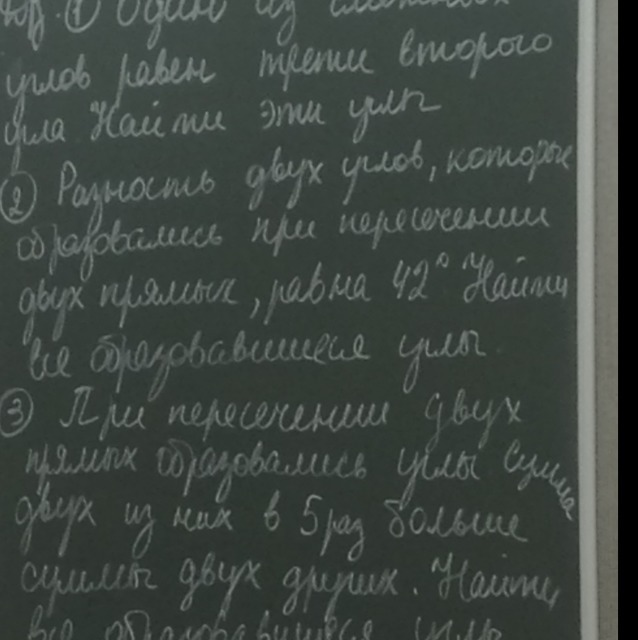 ① Один из смежных
углов равен трети второго
угла Найти эти углы
② Разность двух углов, которые
образовались при пересечении
двух прямых, равна 42° Найти
все образовавшиеся углы.
③ При пересечении двух
прямых образовались углы Сумма
двух из них в 5 раз больше
суммы двух других. Найти
все образовавшиеся углы